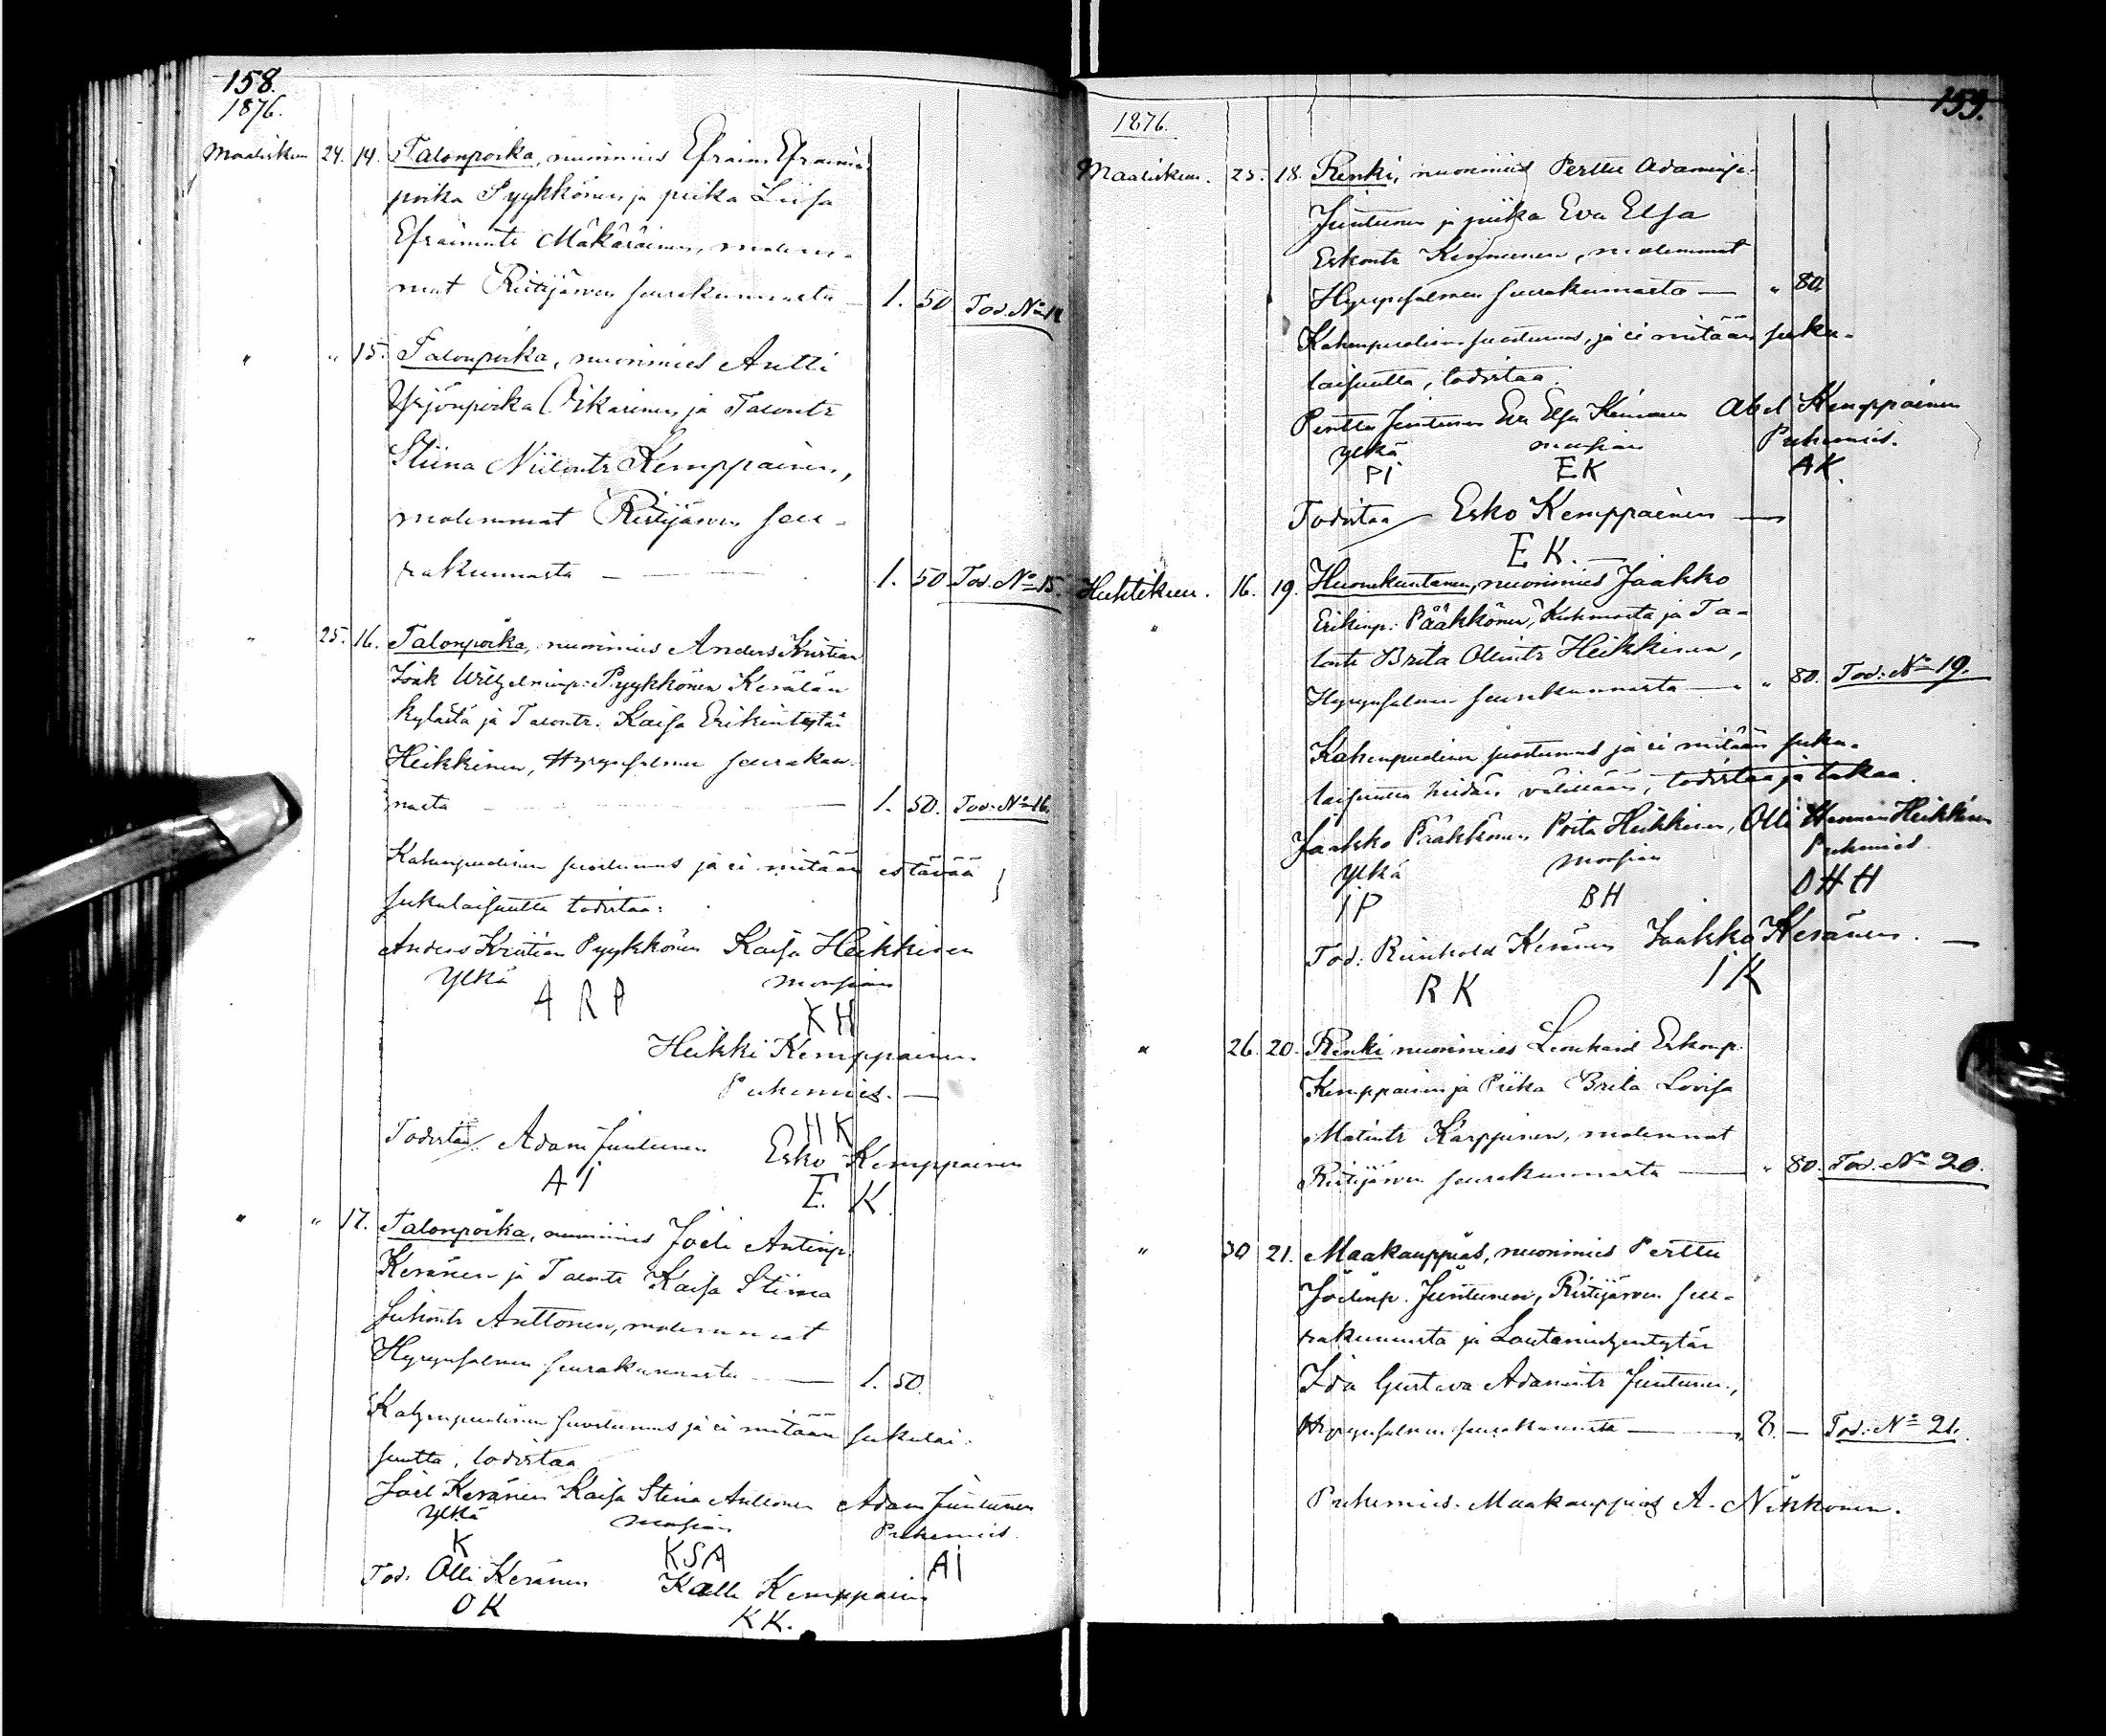 158.
1876.
Maaliskuu 24. 14. Talonpoika, nuorimies Efraim Efraimin
poika Pyykkönen ja piika Liisa
Efraimintr Mäkäräinen, molem-
mat Ristijärven seurakunnasta — 1. 50 Tod. No 14
" " 15. Talonpoika, nuorimies Antti
Yrjönpoika Oikarinen ja Talontr
Stiina Niilontr Kemppainen,
molemmat Ristijärven seu-
rakunnasta — 1. 50 Tod. No 15.
" 25. 16. Talonpoika, nuorimies Anders Kristian
Wilhelminp: Pyykkönen Kerälän
kylästä ja Talontr. Kaisa Erikintytär
Heikkinen, Hyrynsalmen seurakun-
nasta — 1. 50. Tod: No 16.
Kahenpuolinen suostumus ja ei mitään estävää
sukulaisuutta todistaa:
Anders Kristian Pyykkönen Kaisa Heikkinen
Ylkä morsian
A R P K H
Heikki Kemppainen
Puhemies. —
H K
Todistaa: Adam Juntunen Esko Kemppainen
A J E. K.
" " 17. Talonpoika, nuorimies Joeli Antinp.
Keränen ja Talontr Kaisa Stiina
Anttonen, molemmat
Hyrynsalmen seurakunnasta — 1. 50.
Kahenpuolinen suostumus ja ei mitään sukulai-
suutta, todistaa
Joel Keränen Kaisa Stina Anttonen Adam Juntunen
Ylkä morsian Puhemies.
K KSA AJ
Tod: Olli Keränen Kalle Kemppainen
OK KK.
159.
1876.
Maaliskuu. 25. 18. Renki, nuorimies Perttu Adaminp.
Juntunen ja piika Eva Elsa
Eskontr Keinänen, molemmat
Hyrynsalmen seurakunnasta — " 80.
Kahenpuolinen suostumus, ja ei mitään suku-
laisuutta, todistaa.
Perttu Juntunen Eva Elsa Keinänen Abel Kemppainen
Ylkä morsian Puhemies.
PJ EK AK.
Todistaa Esko Kemppainen —
E K.
Huhtikuu. 16. 19. Huonekuntanen, nuorimies Jaakko
" Erikinp: Pääkkönen, Kuhmosta ja Ta-
lontr Brita Olintr Heikkinen,
Hyrynsalmen seurakunnasta — " 80. Tod: No 19.
Kahenpuolinen suostumus ja ei mitään suku-
laisuutta heidän välillään, todistaa ja takaa.
Jaakko Pääkkönen, Brita Heikkinen, Olli Herman Heikkinen
Ylkä Morsian Puhemies.
JP BH OHH
Tod: Reinhold Keränen Jaakko Keränen. —
R K J K
" 26. 20. Renki nuorimies Leonhard Eskonp.
Kemppainen ja Piika Brita Lovisa
Matintr Karppinen, molemmat
Ristijärven seurakunnasta — " 80. Tod. No 20.
" 30 21. Maakauppias, nuorimies Perttu
Joelinp. Juntunen, Ristijärven seu-
rakunnasta ja Lautamiehentytär
Ida Gustava Adamintr Juntunen,
Hyrynsalmen seurakunnasta — " 8. — Tod: No 21.
Puhemies. Maakauppias A. Niskonen.